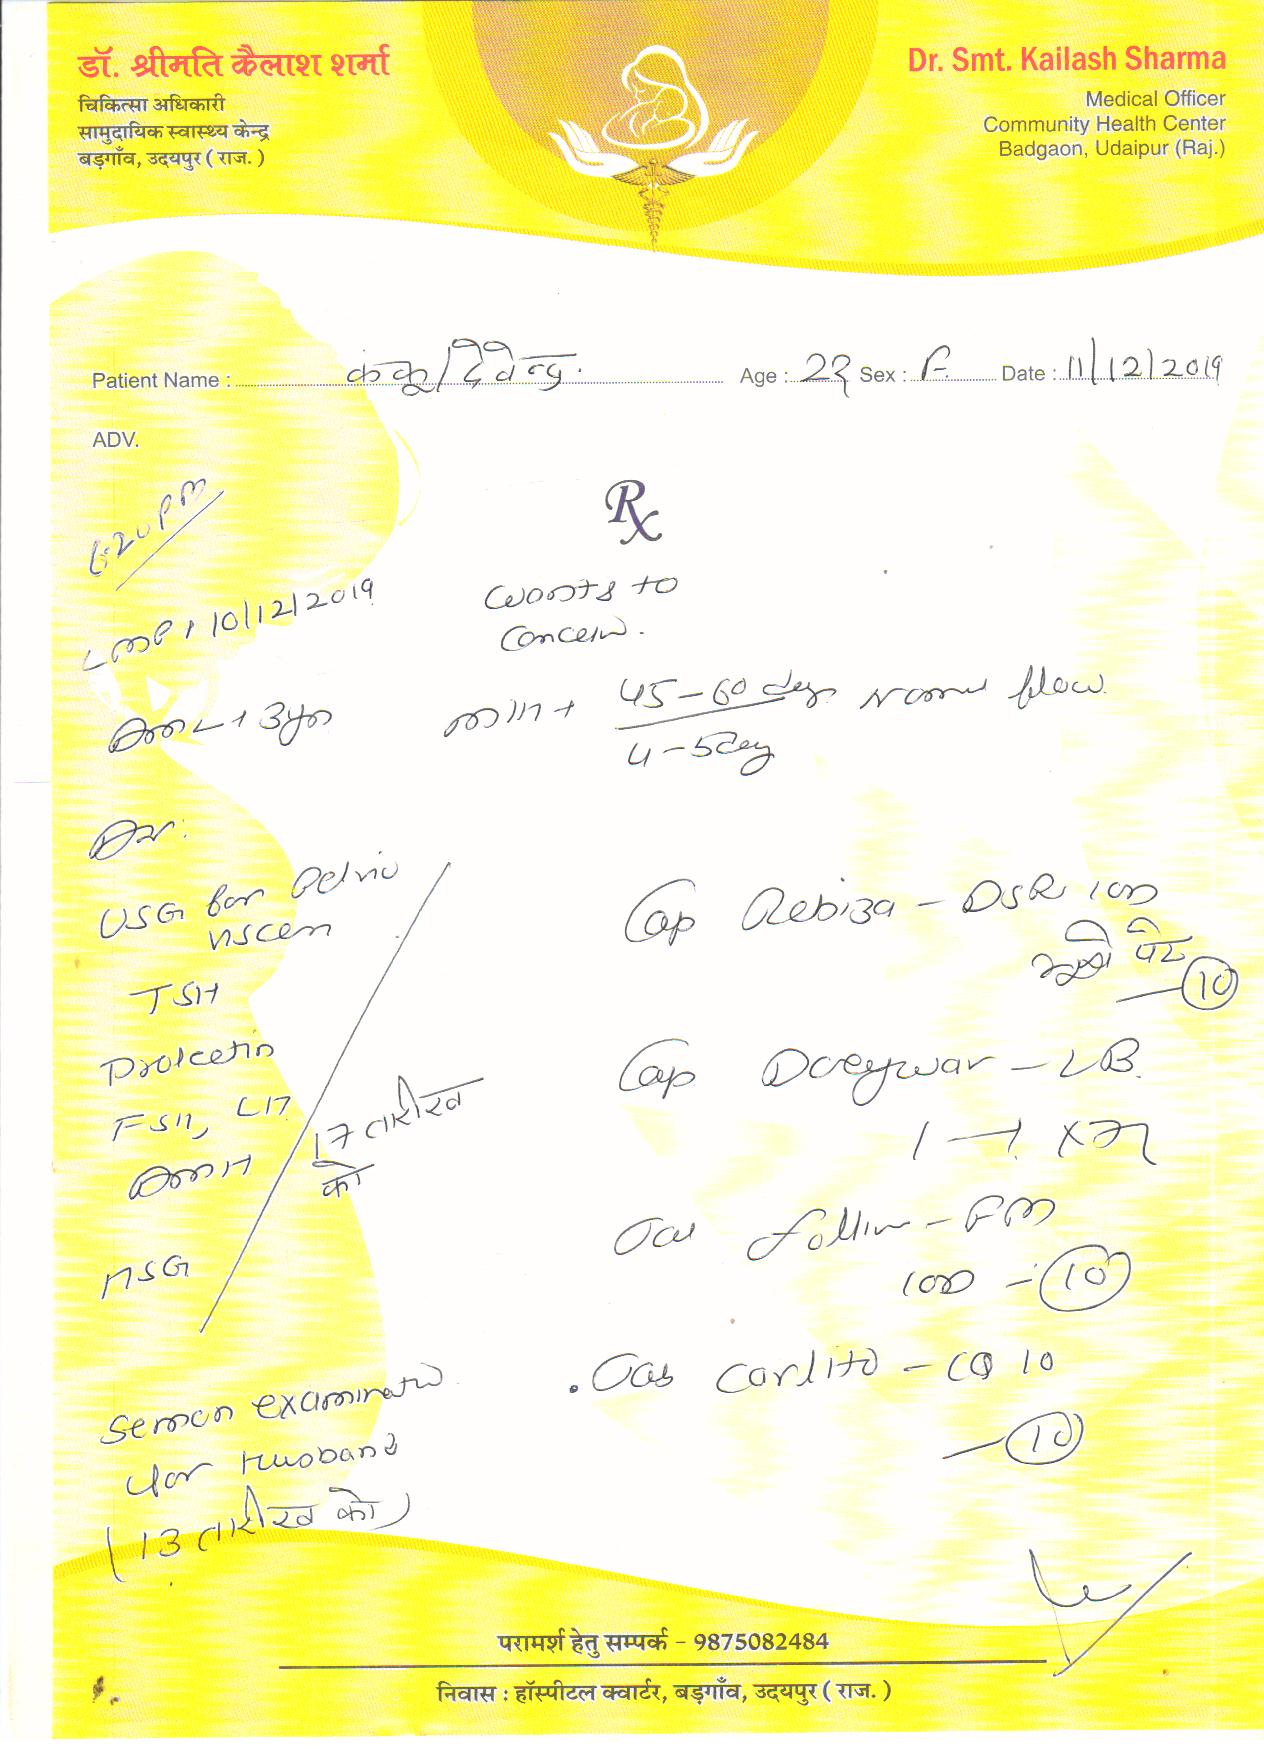 डॉ. श्रीमति कैलाश शर्मा
चिकित्सा अधिकारी
सामुदायिक स्वास्थ्य केन्द्र
बड़गाँव, उदयपुर ( राज. )
Dr. Smt. Kailash Sharma
Medical Officer
Community Health Center
Badgaon, Udaipur (Raj.)
Patient Name : कंकू/देवेन्द्र Age : 23 Sex : F Date : 11/12/2019
ADV.
6:20 PM
Rx
LMP: 10/12/2019
wants to
concein.
3yrs
M/H + 45-60 days flow
4-5 day
USG for Pelvic
TSH
Prolcetin
FSH, LH
AMH
17 तारीख
को
HSG
Semen examinatn
for Husband
(13 तारीख को)
Cap Rebiza - DSR 1OD
भूखे पेट
- 10
Cap - LB
Tab Follin - FM
1OD - 10
Tab Carlito - CQ 10
- 10
परामर्श हेतु सम्पर्क - 9875082484
निवास : हॉस्पीटल क्वार्टर, बड़गाँव, उदयपुर ( राज. )